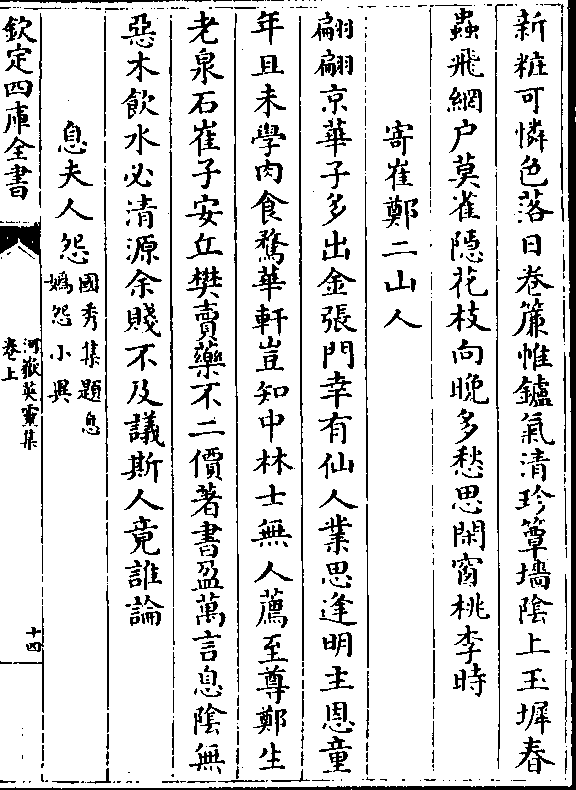 新粧可憐色落日卷簾帷鑪氣清珍簟墻陰上玉墀春
蟲飛網户莫雀隱花枝向晚多愁思閑窗桃李時
寄崔鄭二山人
翩翩京華子多出金張門幸有仙人業思逢明主恩童
年且未學肉食鶩華軒豈知中林士無人薦至尊鄭生
老泉石崔子安丘樊賣藥不二價著書盈萬言息陰無
惡木飲水必清源余賤不及議斯人竟誰論
息夫人怨國秀集題息
媯怨小異
欽定四庫全書
河嶽英靈集
卷上
十四